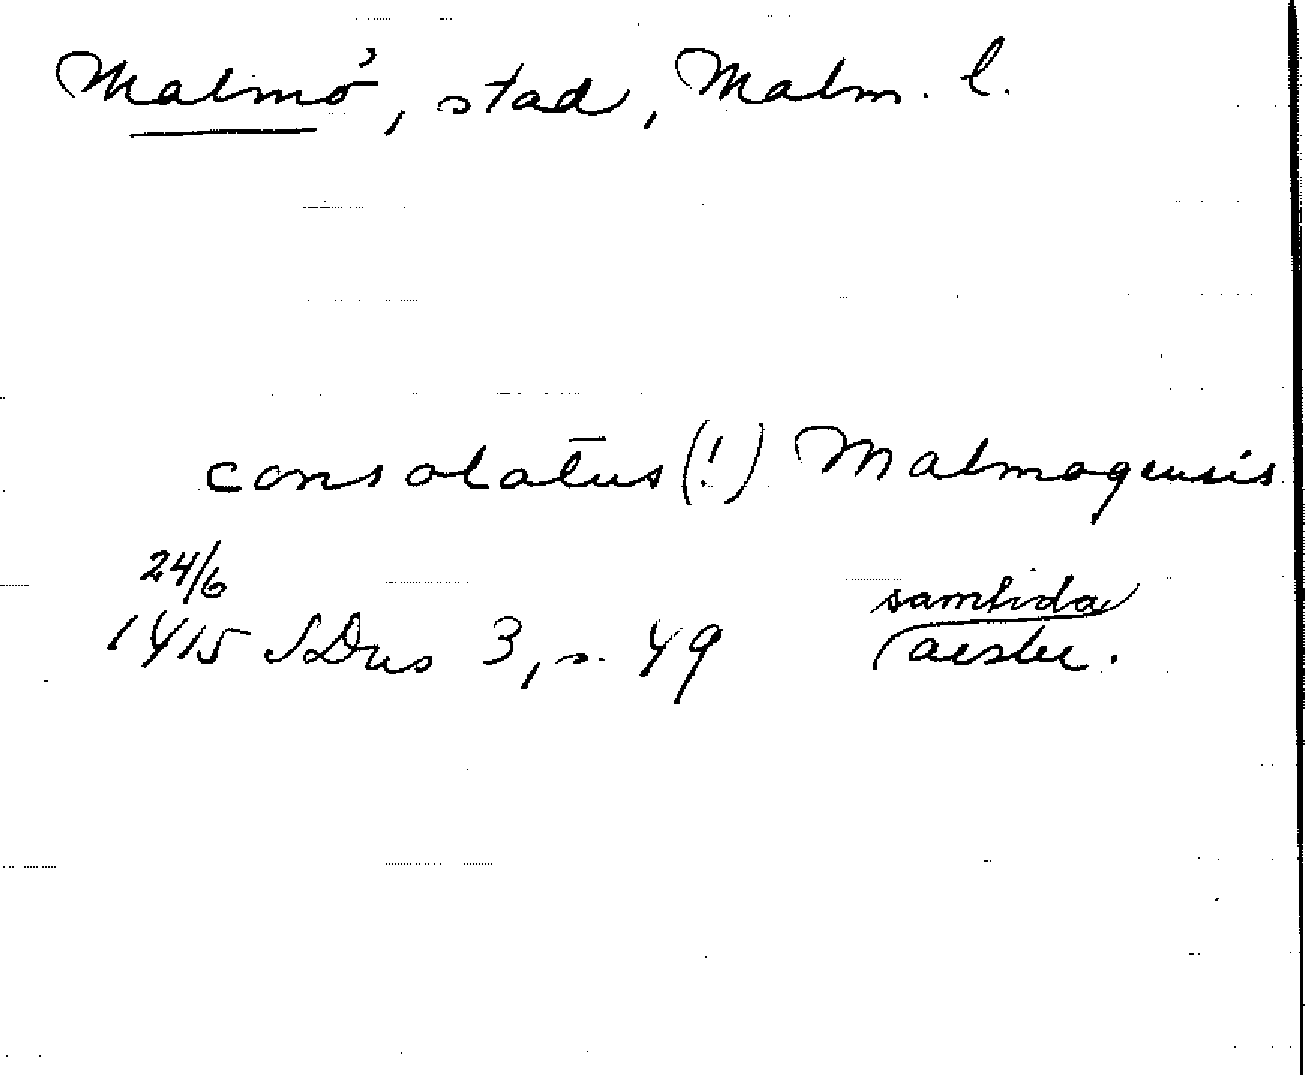 Malmö, stad, Malm. l.
consolatus (!) Malmogensis
24/6
1415 SDns 3, s. 49
samtida
avskr.